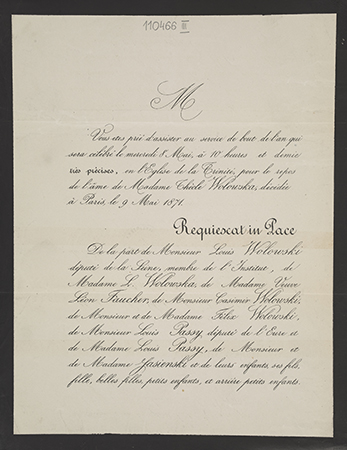 110466 III
M
Vous êtes prié d'assister au service de bout de l'an qui
sera célébré le mercredi 8 Mai, à 10 heures et demie
très précises, en l'Eglise de la Trinité, pour le repos
de l'âme de Madame Thècle Wolowska, décédée
à Paris, le 9 Mai 1871.
Requiescat in Pace
De la part de Monsieur Louis Wolowski
député de la Seine, membre de l'Institut, de
Madame L. Wolowska, de Madame Veuve
Léon Faucher, de Monsieur Casimir Wolowski,
de Monsieur et de Madame Félix Wolowski,
de Monsieur Louis Passy, député de l'Eure et
de Madame Louis Passy, de Monsieur et
de Madame Jasienski et de leurs enfants, ses fils,
fille, belles filles, petits enfants, et arrière petits enfants.